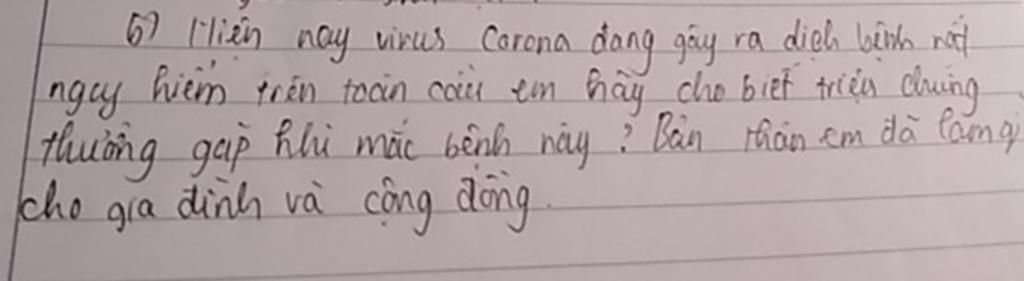 5) Hiện nay virus Corona đang gây ra dịch bệnh rất
nguy hiểm trên toàn cầu em hãy cho biết triệu chứng
thường gặp khi mắc bệnh này? Bản thân em đã làm gì
cho gia đình và cộng đồng.